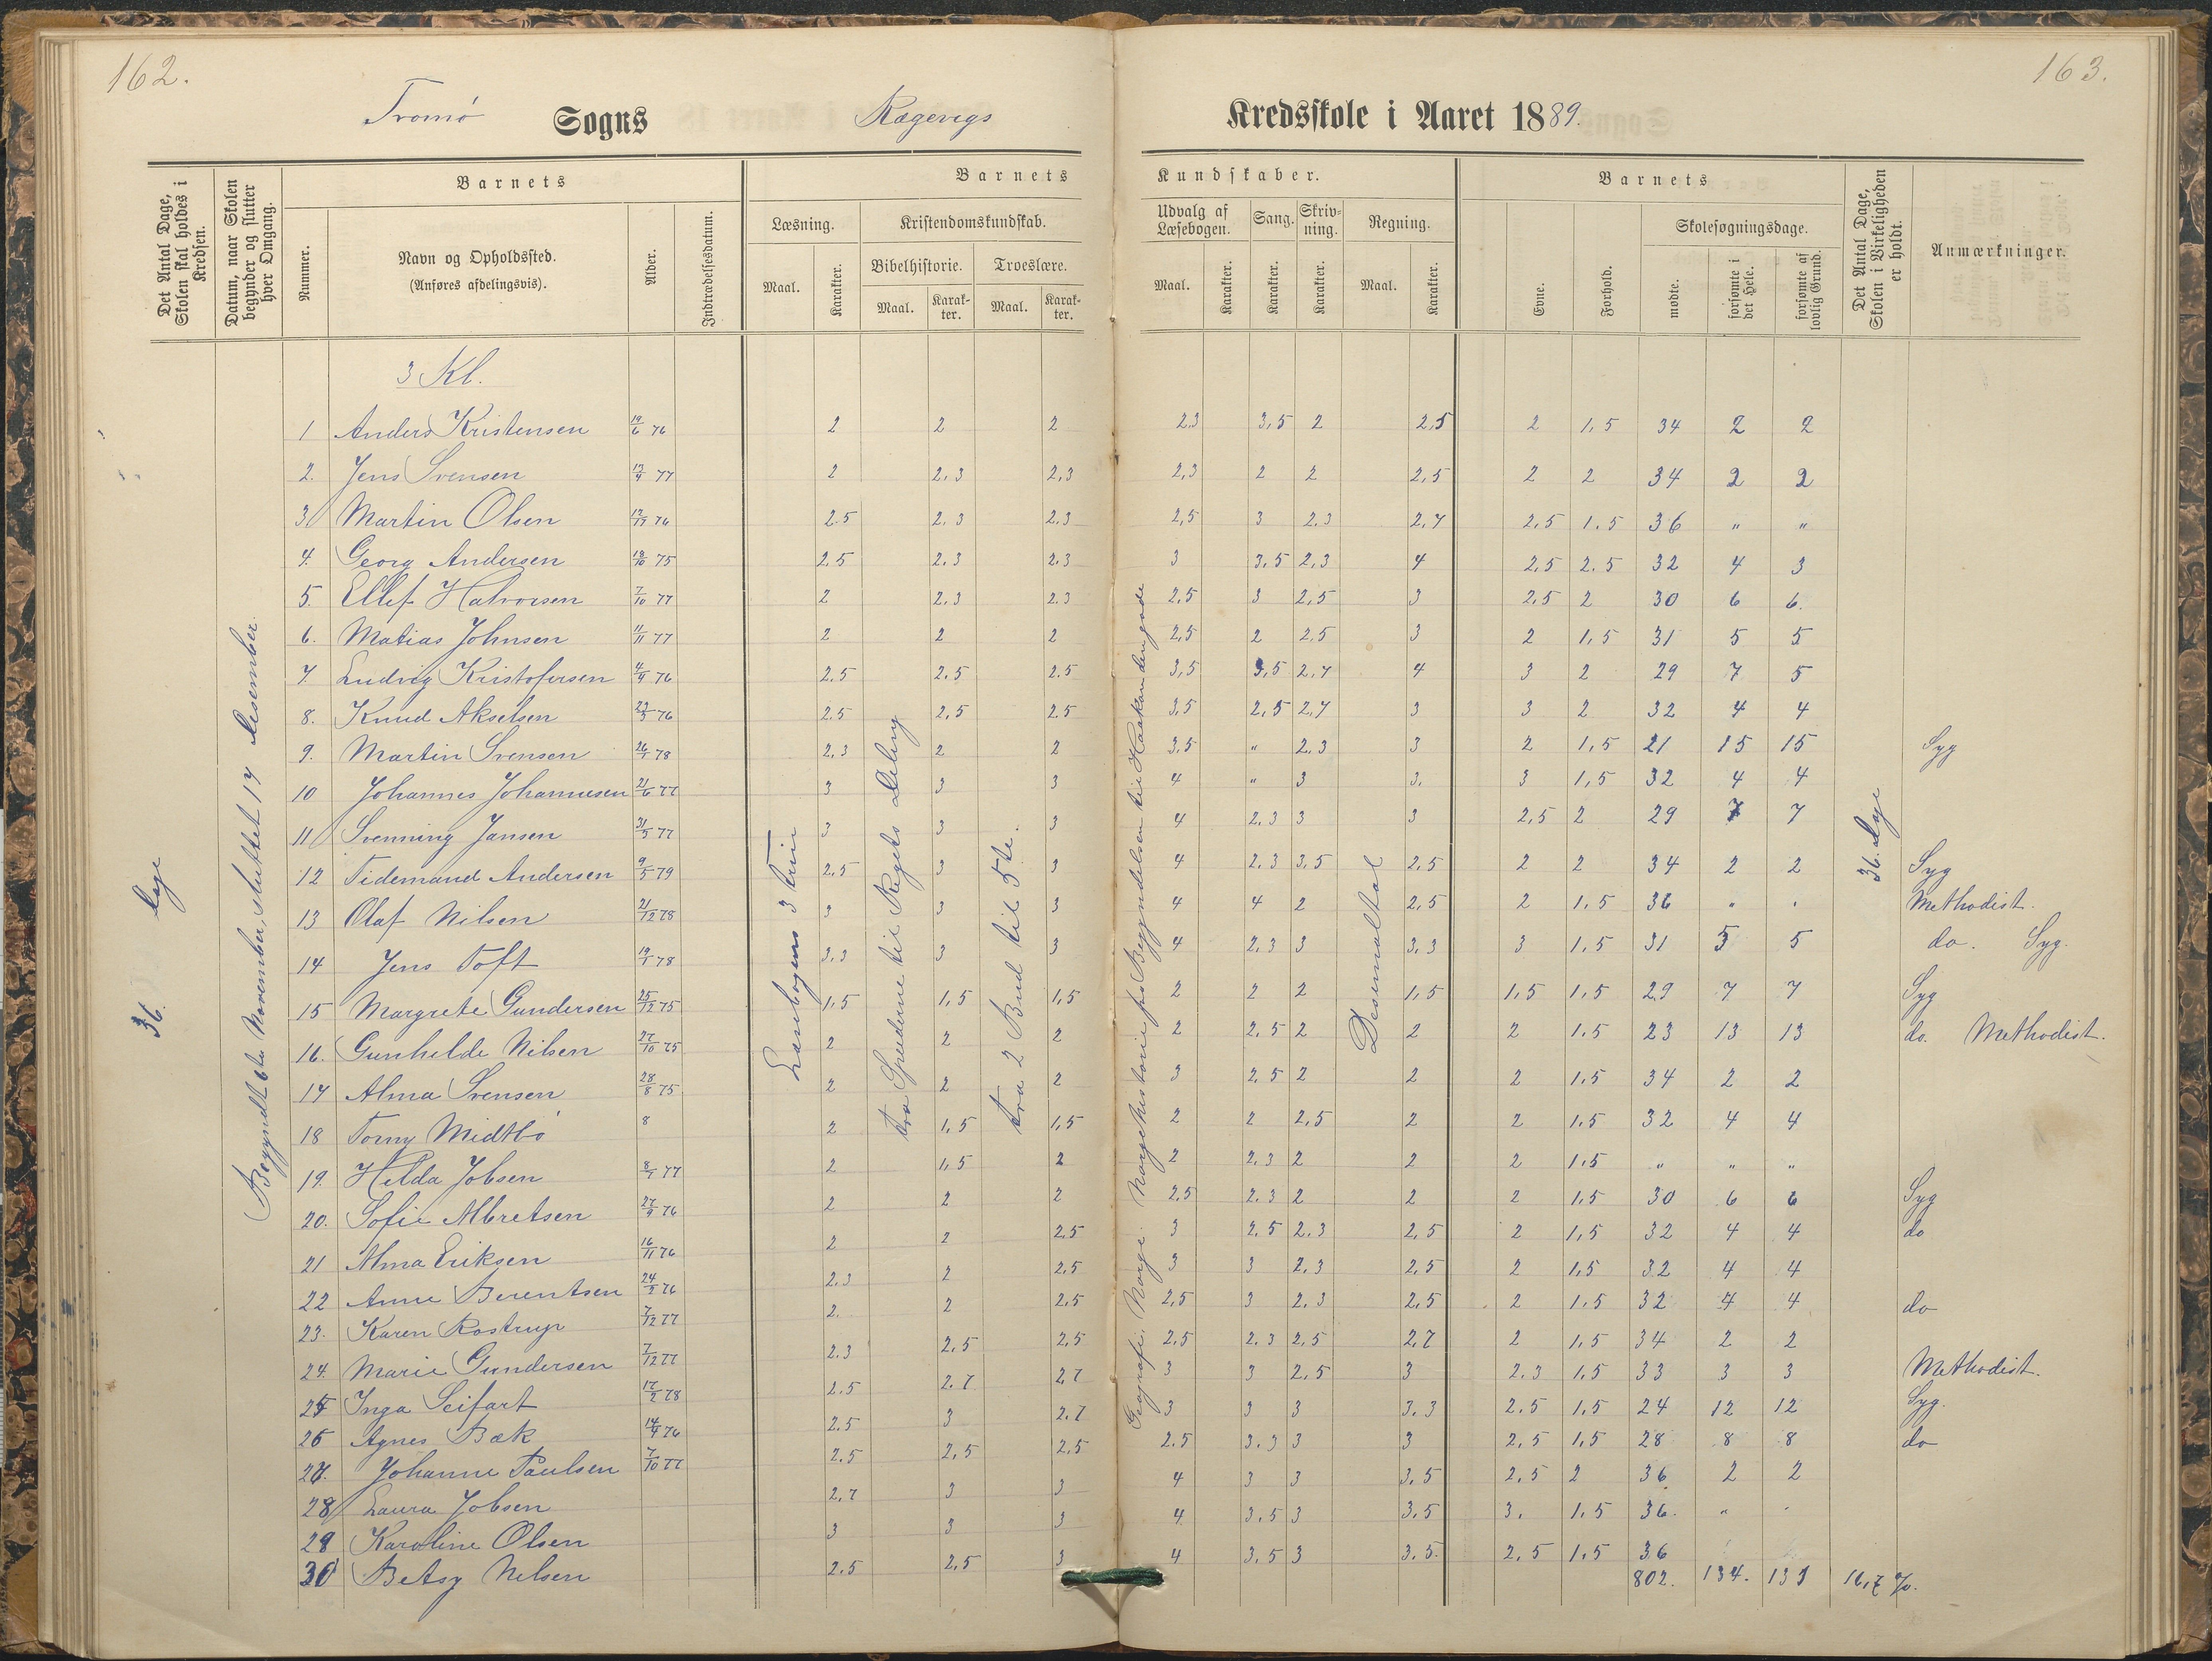 162.
163.
Tromø Sogns Rægevigs Kredsskole i Aaret 1889.
Det Antal Dage, Skolen skal holdes i Kredsen.
Datum, naar Skolen begynder og slutter hver Omgang.
Barnets
Nummer.
Navn og Opholdssted. (Anføres afdelingsvis).
Alder.
Indtrædelsesdatum.
Barnets Kundskaber.
Læsning. Maal. Karakter.
Kristendomskundskab.
Bibelhistorie. Maal. Karakter.
Troeslære. Maal. Karakter.
Udvalg af Læsebogen. Maal. Karakter.
Sang. Karakter.
Skrivning. Karakter.
Regning. Maal. Karakter.
Barnets
Evne.
Forhold.
Skolesøgningsdage.
mødte.
forsømte i det Hele.
forsømte af lovlig Grund.
Det Antal Dage, Skolen i Virkeligheden er holdt.
Anmærkninger.
36. Dage
Begyndt 6te November, sluttet 17 Desember.
Læsebogens 3 Trin
Fra Grederne til Rigets Deling
Fra 2 Bud til 5te.
Geografi: Norge. Norgeshistorie fra Begyndelsen til Haakon den gode
Desemaltal
36. Dage
3 Kl.
1 Anders Kristensen 19/6 76 2 2 2 2.3 3,5 2 2,5 2 1,5 34 2 2
2. Jens Svensen 13/9 77 2 2,3 2,3 2,3 2 2 2,5 2 2 34 2 2
3 Martin Olsen 76 2.5 2.3 2.3 2,5 3 2.3 2,7 2,5 1.5 36 " "
4. Georg Andersen 18/10 75 2,5 2.3 2.3 3 3,5 2,3 4 2,5 2.5 32 4 3
5. Ellef Halvorsen 7/10 77 2 2,3 2.3 2,5 3 2,5 3 2,5 2 30 6 6.
6. Matias Johnsen 11/11 77 2 2 2 2,5 2 2,5 3 2 1,5 31 5 5
7. Ludvig Kristofersen 4/9 76 2.5 2.5 2.5 3,5 3,5 2,7 4 3 2 29 7 5
8. Knud Akselsen 23/3 76 2.5 2,5 2.5 3,5 2,5 2,7 3 3 2 32 4 4
9. Martin Svensen 26/1 78 2,3 2 2 3,5 " 2.3 3 2 1,5 21 15 15 Syg
10 Johannes Johannesen 21/6 77 3 3 3 4 " 3 3. 3 1,5 32 4 4
11 Svenning Jansen 31/3 77 3 3 3 4 2,3 3 3 2,5 2 29 7 7
12 Tidemand Andersen 9/5 79 2,5 3 3 4 2.3 3,5 2,5 2 2 34 2 2 Syg
13 Olaf Nilsen 21/12 78 3 3 3 4 4 2 2,5 2 1,5 36 " " Methodist.
14 Jens Toft 19/1 78 3,3 3 3 4 2,3 3 3,3 3 1,5 31 5 5 do. Syg.
15 Margrete Gundersen 25/12 75 1,5 1,5 1,5 2 2 2 1,5 1,5 1,5 29 7 7 Syg
16. Gunhilde Nilsen 27/10 75 2 2 2 2 2,5 2 2 2 1.5 23 13 13 do. Methodist.
17 Alma Svensen 28/8 75 2 2 2 3 2,5 2 2 2 1,5 34 2 2
18 Torny Midtbö 8 2 1,5 1,5 2 2 2,5 2 2 1,5 32 4 4
19. Hilda Jobsen 8/1 77 2 1,5 2 2 2,3 2 2 2 1,5 " " "
20. Sofie Albretsen 27/9 76 2 2 2 2,5 2.3 2 2 2 1,5 30 6 6 Syg
21 Alma Eriksen 16/11 76 2 2 2.5 3 2,5 2.3 2,5 2 1,5 32 4 4 do
22 Anne Berentsen 24/2 76 2.3 2 2,5 3 3 2,3 2,5 2 1,5 32 4 4
23. Karen Rostrup 7/12 77 2. 2 2,5 2,5 3 2.3 2,5 2 1.5 32 4 4 do
24. Marie Gundersen 7/12 77 2.3 2,5 2,5 2,5 2.3 2,5 2,7 2 1,5 34 2 2
25 Inga Seifart 17/2 78 2.5 2.7 2,7 3 3 2,5 3 2.3 1,5 33 3 3 Methodist.
26 Agnes Bæk 14/4 76 2.5 3 2.7 3 3 3 3.3 2.5 1,5 24 12 12 Syg.
27. Johanne Paulsen 7/10 77 2.5 2,5 2,5 2.5 3.3 3 3 2,5 1,5 28 8 8 do
28 Laura Jobsen 2,7 3 3 4 3 3 3,5 2,5 2 36 2 2
29 Karoline Olsen 3 3 3 4 3,5 3 3.5 3. 1,5 36. " "
30 Betsy Nilsen 2.5 2,5 3 4 3,5 3 3.5. 2,5 1,5 36
802. 134. 131 16,7 %.